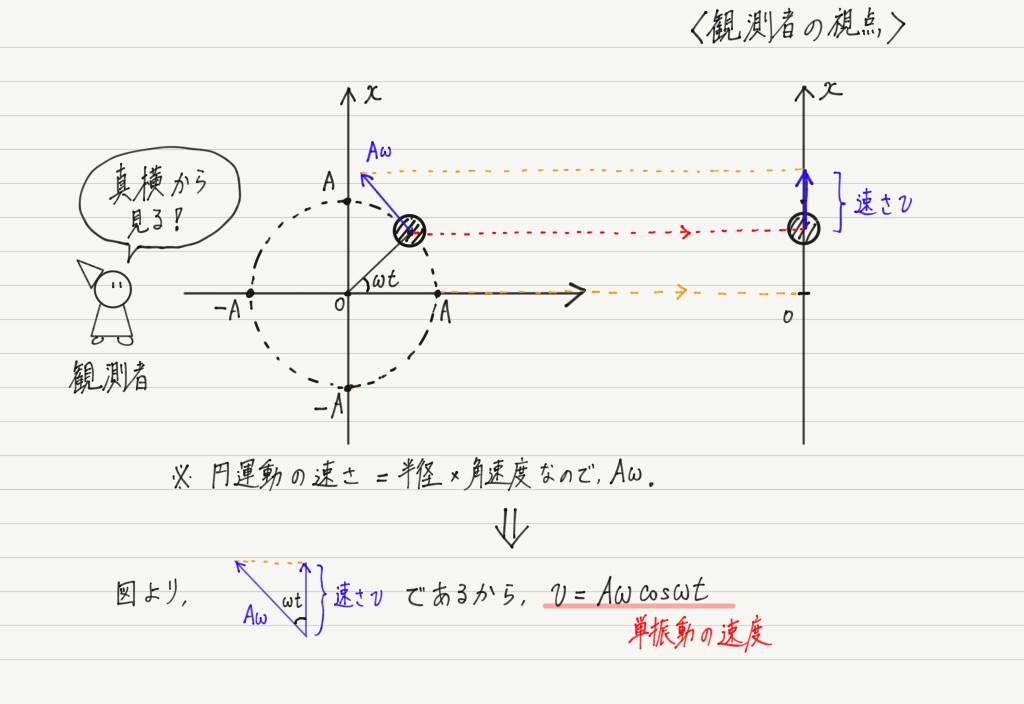 〈観測者の視点〉
x
x
Aω
真横から
見る!
A
速さv
ωt
-A
O
A
O
観測者
-A
※ 円運動の速さ = 半径 × 角速度なので, Aω.
⇓
図より, Aω ωt 速さv であるから, v = Aω cosωt
単振動の速度